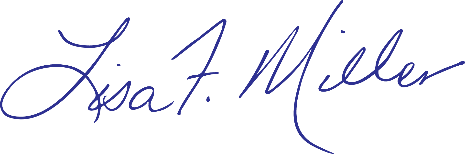 Lisa F. Miller